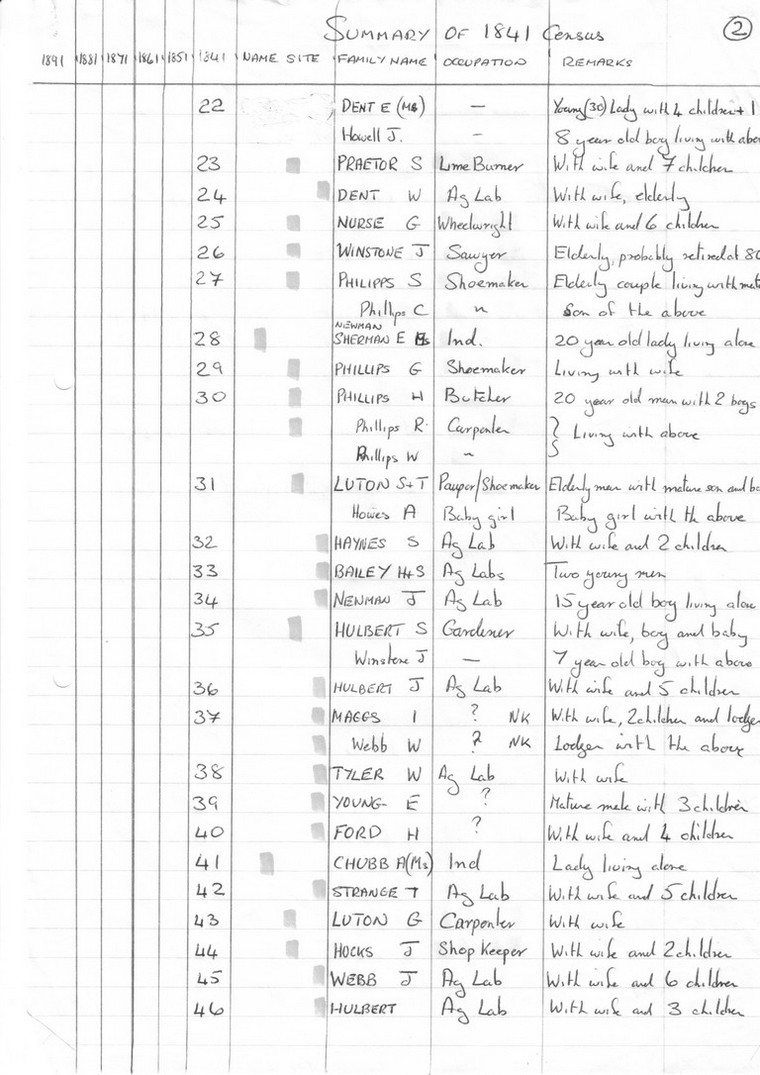 SUMMARY OF 1841 Census 2
1891 1881 1871 1861 1851 1841 NAME SITE FAMILY NAME OCCUPATION REMARKS
22 DENT E (Ms) — Young (30) Lady with 4 children + 1
Howell J. – 8 year old boy living with abov
23 PRAETOR S Lime Burner With wife and 7 children
24 DENT W Ag Lab With wife, elderly
25 NURSE G Wheelwright With wife and 6 children
26 WINSTONE J Sawyer Elderly, probably retired at 80
27 PHILIPPS S Shoemaker Elderly couple living with matu
Phillps C " Son of the above
NEWMAN
28 SHERMAN E Ms Ind. 20 year old lady living alone
29 PHILLIPS G Shoemaker Living with wife
30 PHILLIPS H Butcher 20 year old man with 2 boys
Phillips R. Carpenter } Living with above
Phillips W ~
31 LUTON S+T Pauper/Shoemaker Elderly man with mature son and ba
Howes A Baby girl Baby girl with the above
32 HAYNES S Ag Lab With wife and 2 children
33 BAILEY H+S Ag Labs Two young men
34 NENMAN J Ag Lab 15 year old boy living alone
35 HULBERT S Gardener With wife, boy and baby
Winstone J — 7 year old boy with above
36 HULBERT J Ag Lab With wife and 5 children
37 MAGGS I ? NK With wife, 2 children and lodge
Webb W ? NK Lodger with the above
38 TYLER W Ag Lab With wife
39 YOUNG E ? Mature male with 3 children
40 FORD H ? With wife and 4 children
41 CHUBB A (Ms) Ind Lady living alone
42 STRANGE T Ag Lab With wife and 5 children
43 LUTON G Carpenter With wife
44 HOCKS J Shop Keeper With wife and 2 children
45 WEBB J Ag Lab With wife and 6 children
46 HULBERT Ag Lab With wife and 3 children